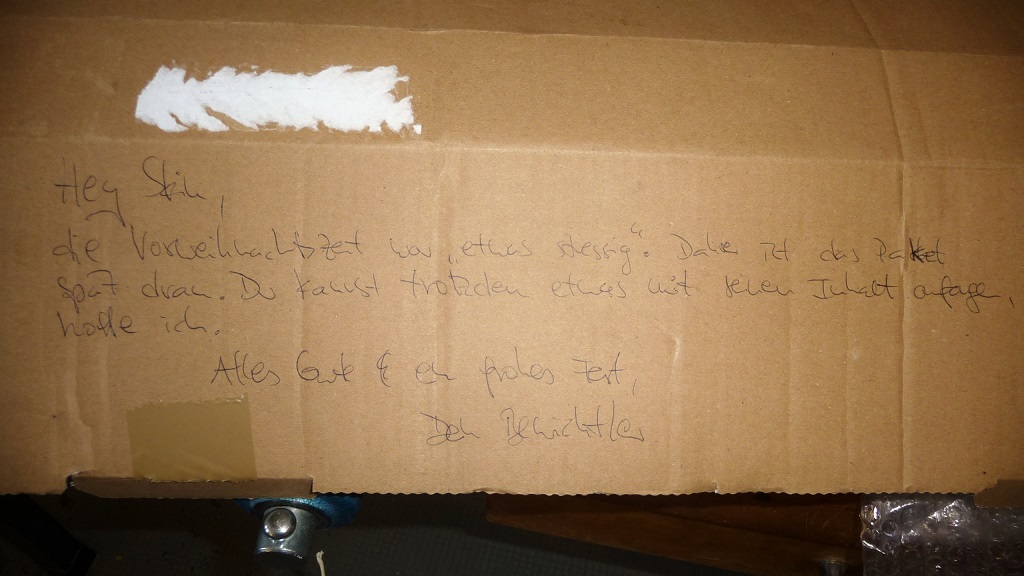 Hey
die Vorweihnachtszeit war „etwas stressig“. Daher ist das Paket
spät dran. Du kannst trotzdem etwas mit seinem Inhalt anfangen,
hoffe ich.
Alles Gute & ein frohes Fest,
Dein Bewichtler